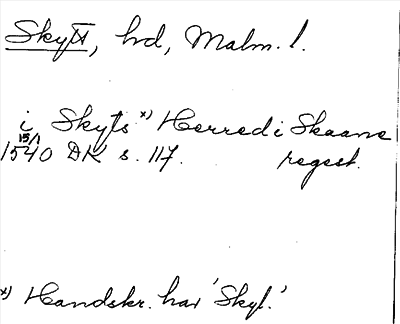 Skytt, hrd, Malm. l.
i Skyts x) Herred i Skaane
15/1
1540 DK s. 117. regest.
x) Handskr. har 'Skyl.'